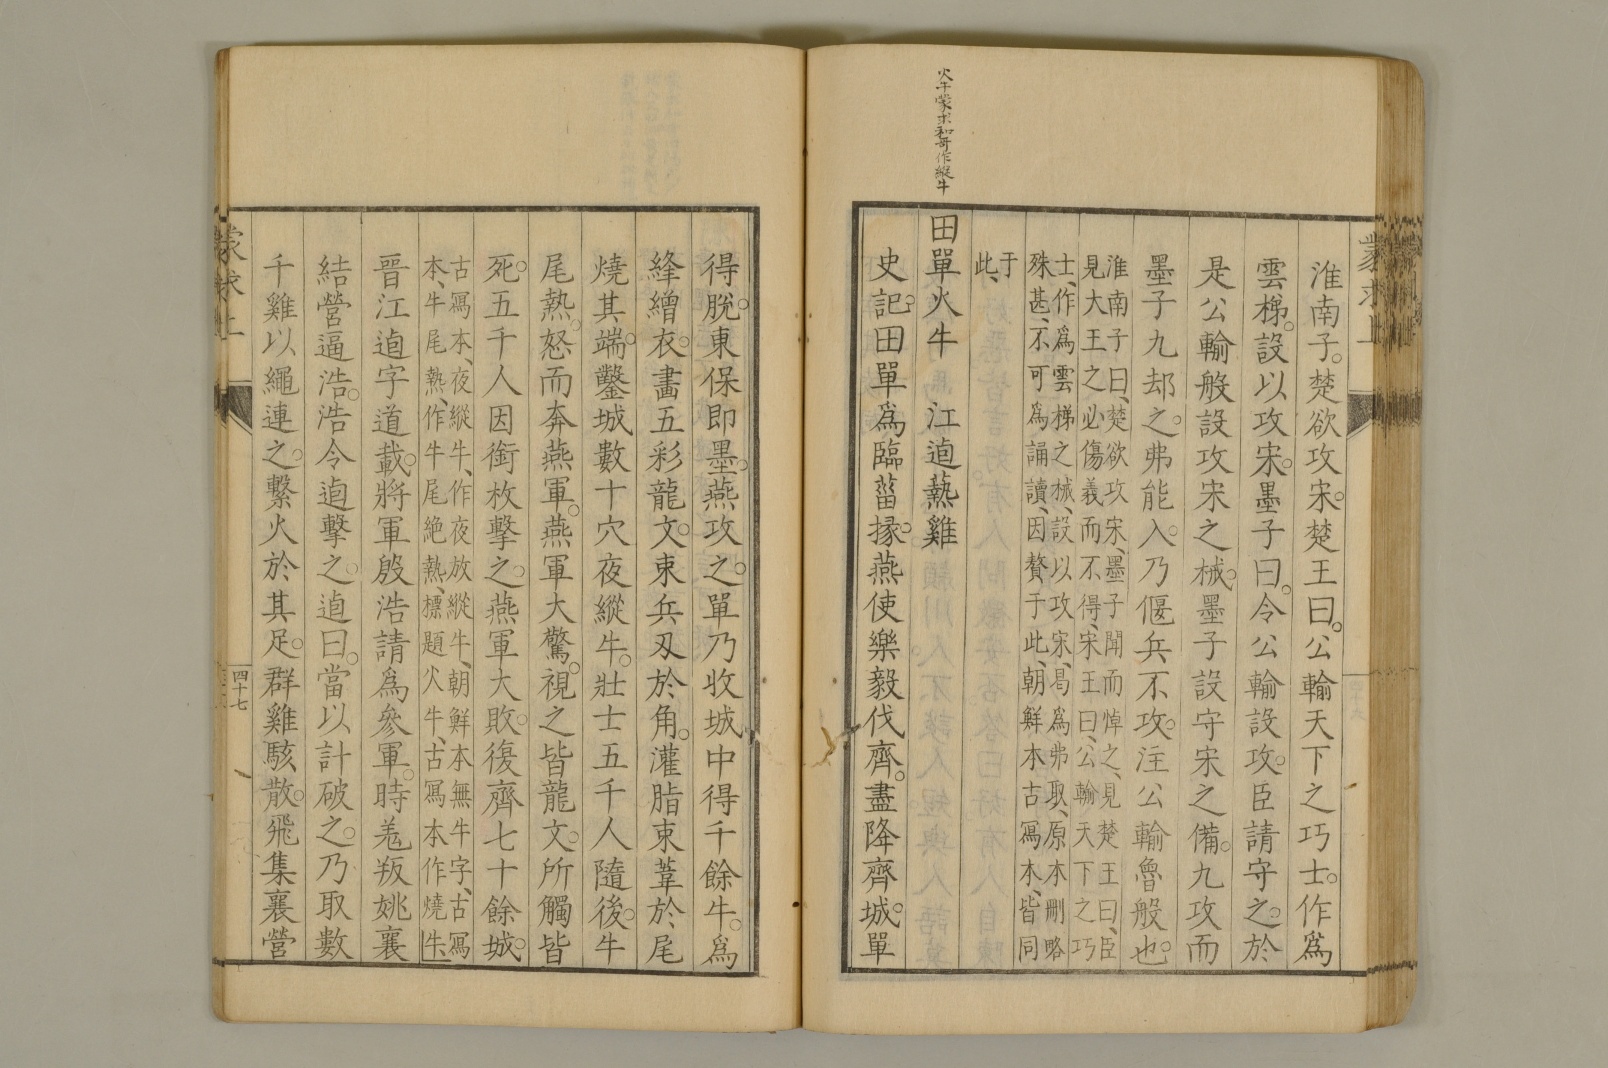 蒙求上
淮南子。楚欲攻宋。楚王曰。公輸天下之巧士。作爲
雲梯。設以攻宋。墨子曰。令公輸設攻。臣請守之。於
是公輸般設攻宋之械。墨子設守宋之備。九攻而
墨子九却之。弗能入。乃偃兵不攻。注公輸魯般也。
淮南子曰、楚欲攻宋、墨子聞而悼之、見楚王曰、臣
見大王之必傷義而不得、宋王曰、公輸天下之巧
士、作爲雲梯之械、設以攻宋、曷爲弗取、原本刪略
殊甚、不可爲誦讀、因贅于此、朝鮮本古寫本、皆同
于
此、
火牛蒙求和哥作縱牛
田單火牛 江逌爇雞
史記。田單爲臨菑掾。燕使樂毅伐齊。盡降齊城。單
得脫。東保即墨。燕攻之。單乃收城中得千餘牛。爲
絳繒衣。畫五彩龍文。束兵刄於角。灌脂束葦於尾
燒其端。鑿城數十穴夜縱牛。壯士五千人隨後。牛
尾熱。怒而奔燕軍。燕軍大驚。視之皆龍文。所觸皆
死。五千人因銜枚擊之。燕軍大敗。復齊七十餘城。
古寫本、夜縱牛、作夜放縱牛、朝鮮本無牛字、古寫
本、牛尾熱、作牛尾絶熱、標題火牛、古寫本作燒牛
晉江逌字道載。將軍殷浩請爲參軍。時羌叛姚襄
結營逼浩。浩令逌擊之。逌曰。當以計破之。乃取數
千雞以繩連之。繫火於其足。群雞駭散。飛集襄營
蒙求上
四十七